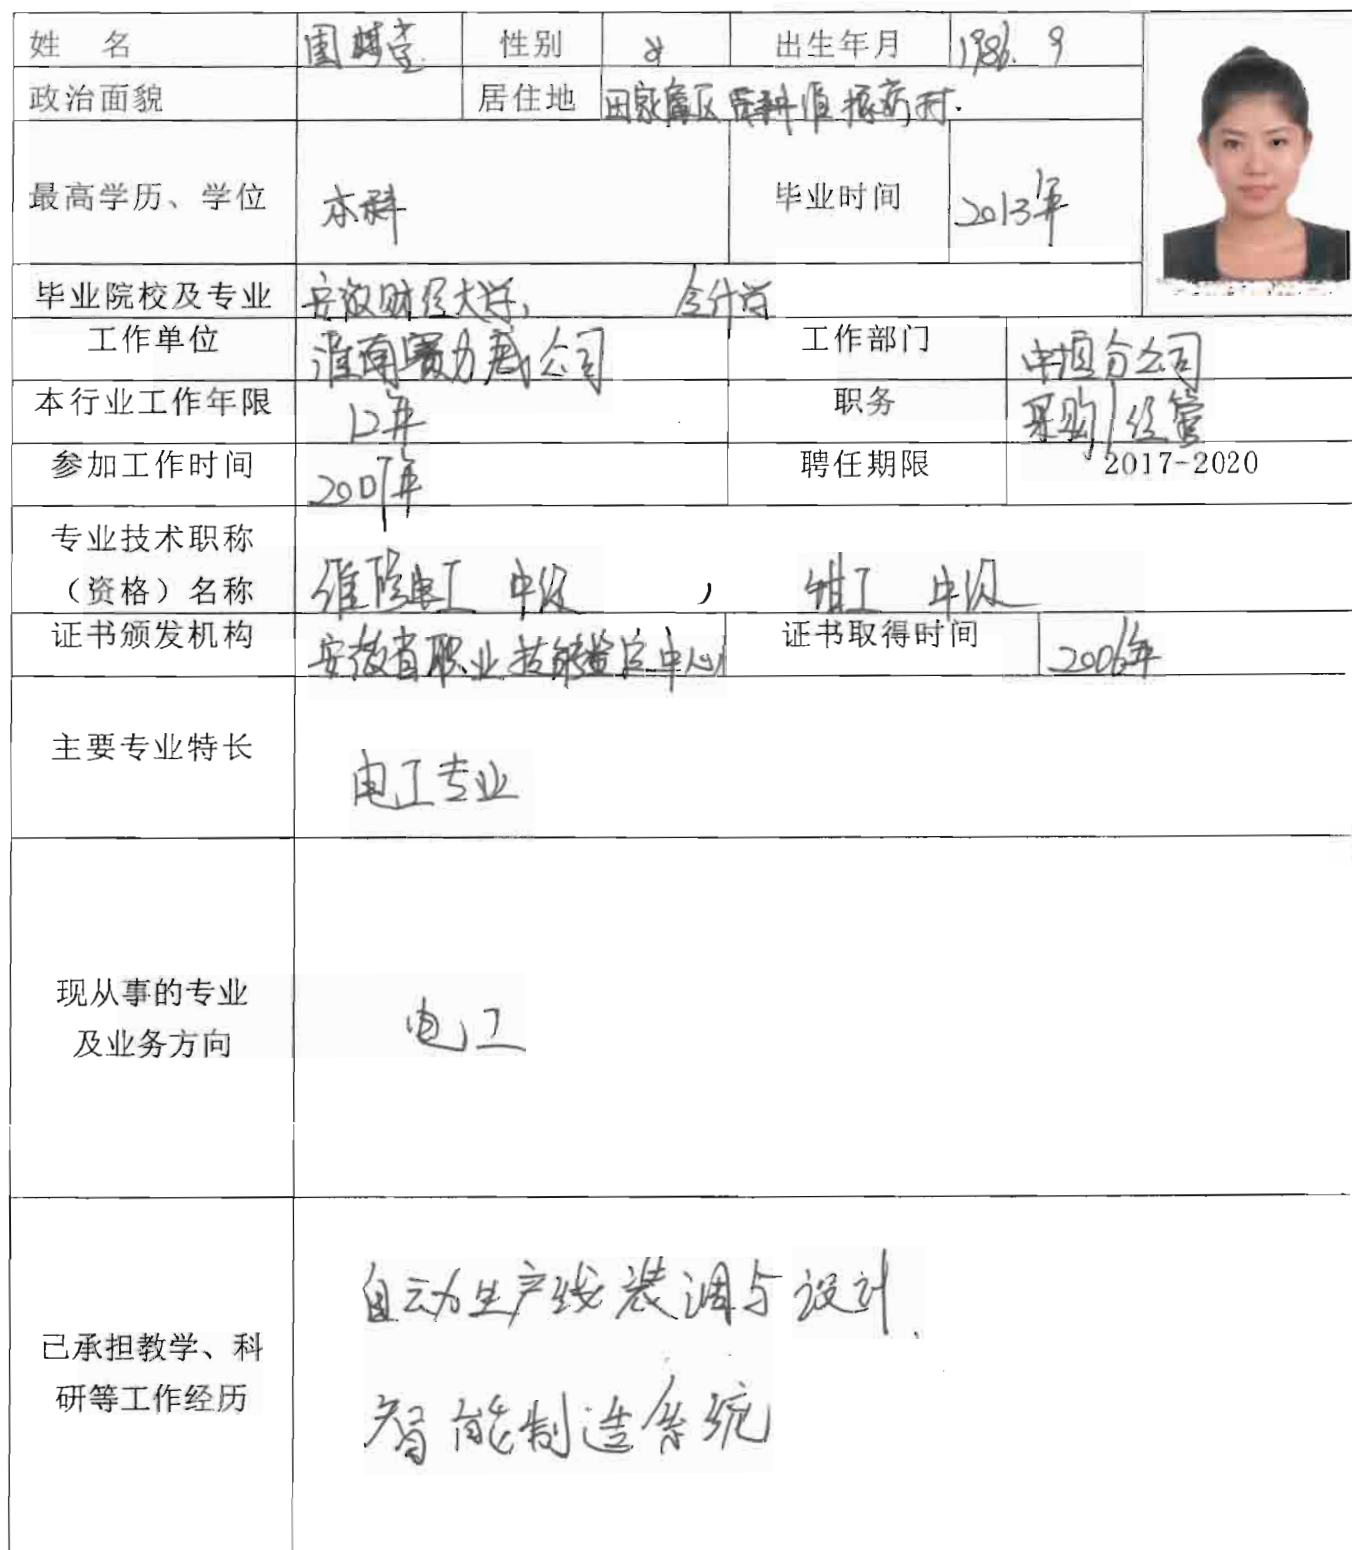 姓 名 性别 女 出生年月 1986. 9
政治面貌 居住地 田家庵区
最高学历、学位 本科 毕业时间 2013年
毕业院校及专业 安徽财经大学, 会计学
工作单位 淮南赛力威公司 工作部门 中恒分公司
本行业工作年限 12年 职务 采购/经管
参加工作时间 2007年 聘任期限 2017-2020
专业技术职称
(资格)名称 维修电工 中级 , 钳工 中级
证书颁发机构 安徽省职业技能鉴定中心 证书取得时间 2006年
主要专业特长 电工专业
现从事的专业
及业务方向
电工
自动生产线装调与设计、
已承担教学、科
研等工作经历
智能制造系统